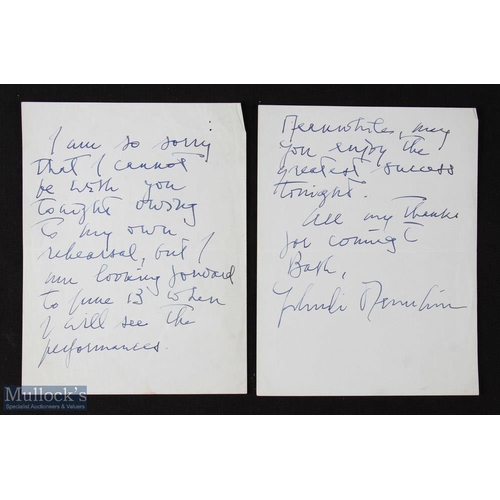 I am so sorry
that I cannot
be with you
tonight owing
to my own
rehearsal, but I
am looking forward
to June 13 when
I will see the
performances.
Meanwhile, may
you enjoy the
greatest success
tonight.
All my thanks
for coming to
Bath,
Yehudi Menuhin
Mullock's
Specialist Auctioneers & Valuers